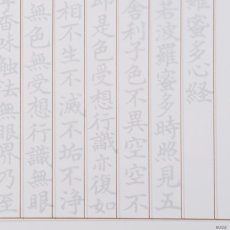 羅蜜多心経
若波羅蜜多時照見五
舎利子色不異空空不
即是色受想行識亦復如
相不生不滅不垢不浄
無色無受想行識無眼
香味触法無眼界乃至